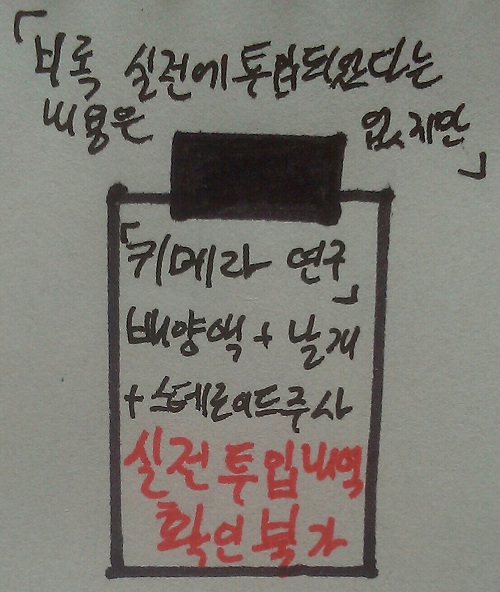 「비록 실전에 투입되었다는
내용은 없지만」
「키메라 연구」
배양액 + 날개
+ 스테로이드주사
실전투입내역
확인불가